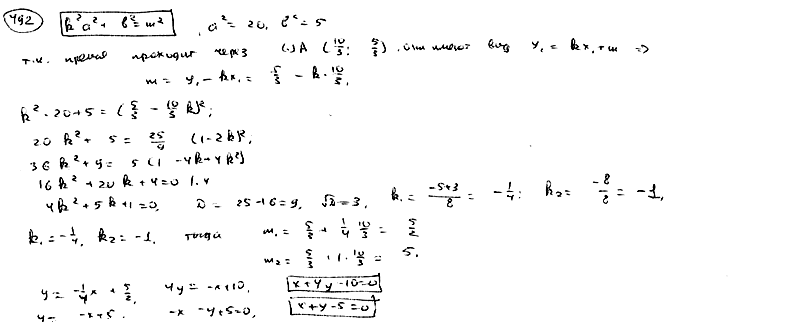 492 k²a² + b² = m² , a² = 20, b² = 5
т.к. прямая проходит через (·) A (10/3; 5/3), они имеют вид y₁ = kx₁ + m =>
m = y₁ - kx₁ = 5/3 - k · 10/3,
k² · 20 + 5 = (5/3 - 10/3 k)²;
20 k² + 5 = 25/9 (1 - 2k)²,
36 k² + 9 = 5 (1 - 4k + 4k²)
16 k² + 20 k + 4 = 0 | : 4
4k² + 5k + 1 = 0, D = 25 - 16 = 9, √D = 3, k₁ = (-5+3)/8 = -1/4; k₂ = -8/8 = -1,
k₁ = -1/4, k₂ = -1, тогда m₁ = 5/3 + 1/4 · 10/3 = 5/2
m₂ = 5/3 + 1 · 10/3 = 5.
y = -1/4 x + 5/2, 4y = -x + 10, x + 4y - 10 = 0
y = -x + 5, -x - y + 5 = 0, x + y - 5 = 0